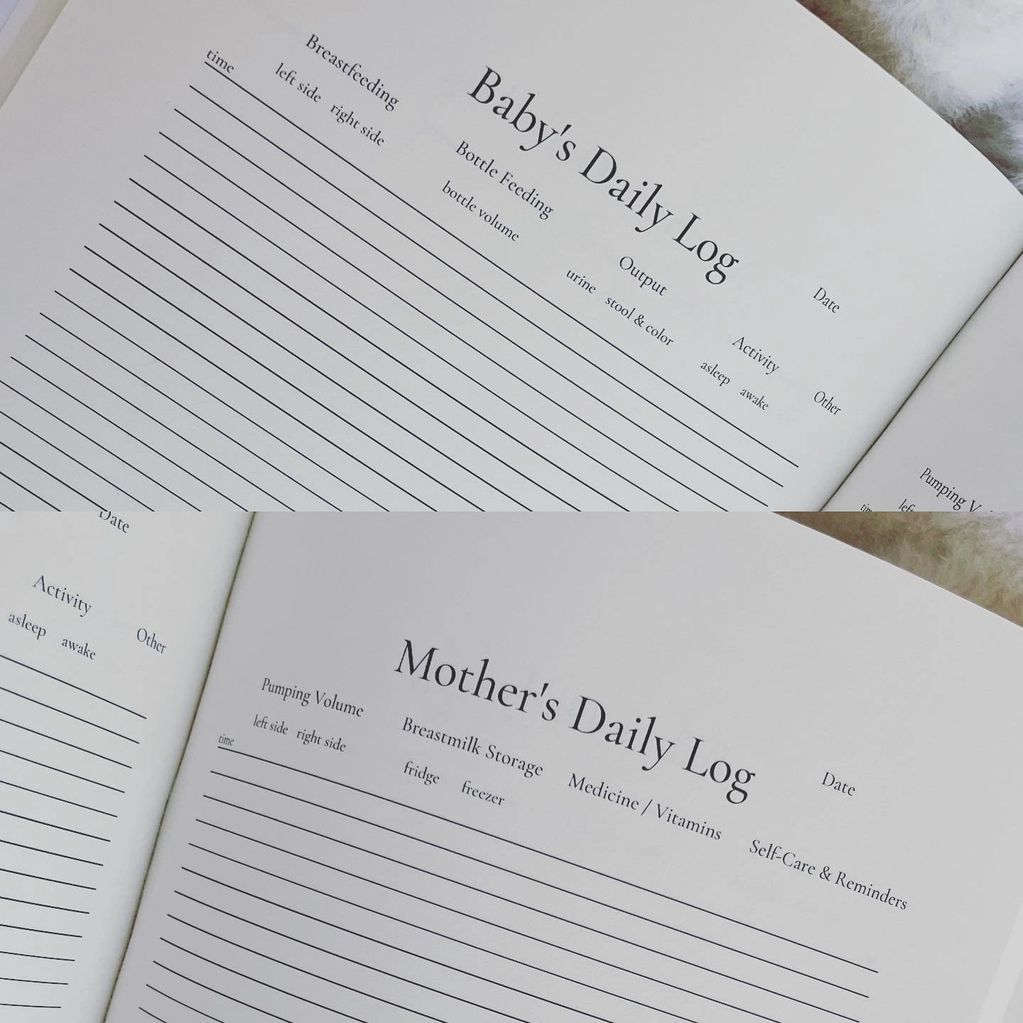 Baby's Daily Log
Date
Breastfeeding
Bottle Feeding
Output
Activity
Other
time
left side right side
bottle volume
urine stool & color
asleep awake
Pumping
left
Date
Activity
Other
asleep awake
Mother's Daily Log
Date
Pumping Volume
Breastmilk Storage
Medicine / Vitamins
Self-Care & Reminders
time
left side right side
fridge freezer